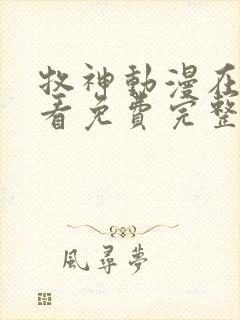 牧神動漫在
看免費完整
風尋夢